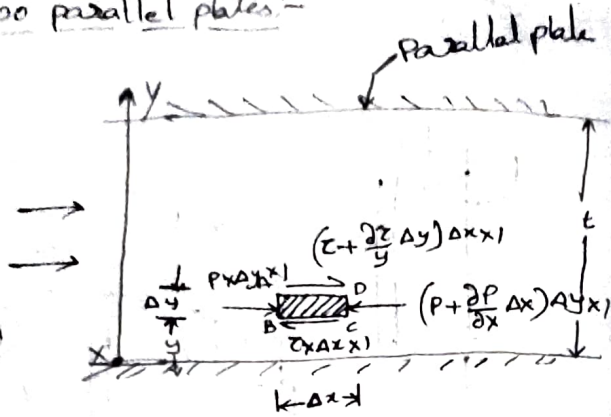 oo parallel plates -
Parallal plate
Y
t
(τ + ∂τ/y Δy) Δx×1
P×Δy×1
D
(P + ∂P/∂x Δx) Δy×1
Δy
B
C
τ×Δx×1
y
X
Δx